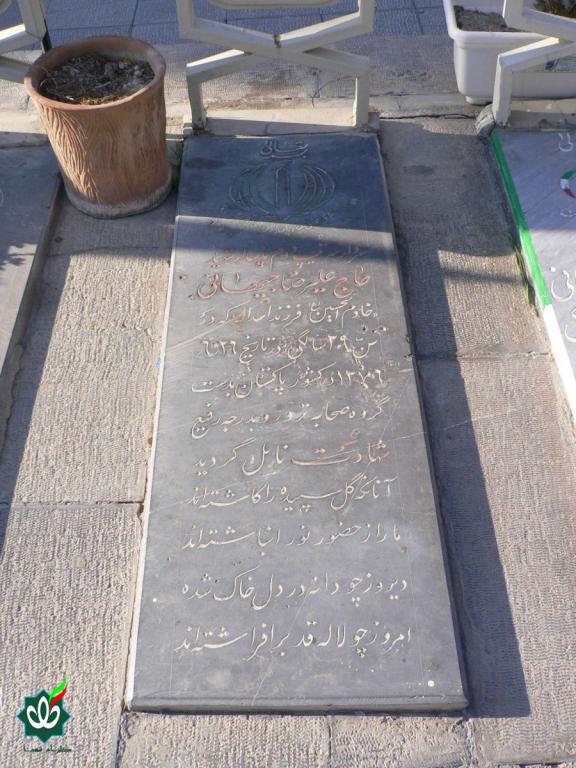 بقا الله
مزار شهید
حاج علیرضا جیحانی
خادم الحسین (ع) فرزند اسدالله که در
سن ۲۰۹ سالگی در تاریخ ۶،۲۶
۱۳۷۶ در کشور پاکستان بدست
گروه صحابه ترور و بدرجه رفیع
شهادت نایل گردید
آنانکه گل سپیده را کاشته‌اند
ما را ز حضور نور انباشته‌اند
دیروز چو دانه در دل خاک شده
امروز چو لاله قد برافراشته‌اند